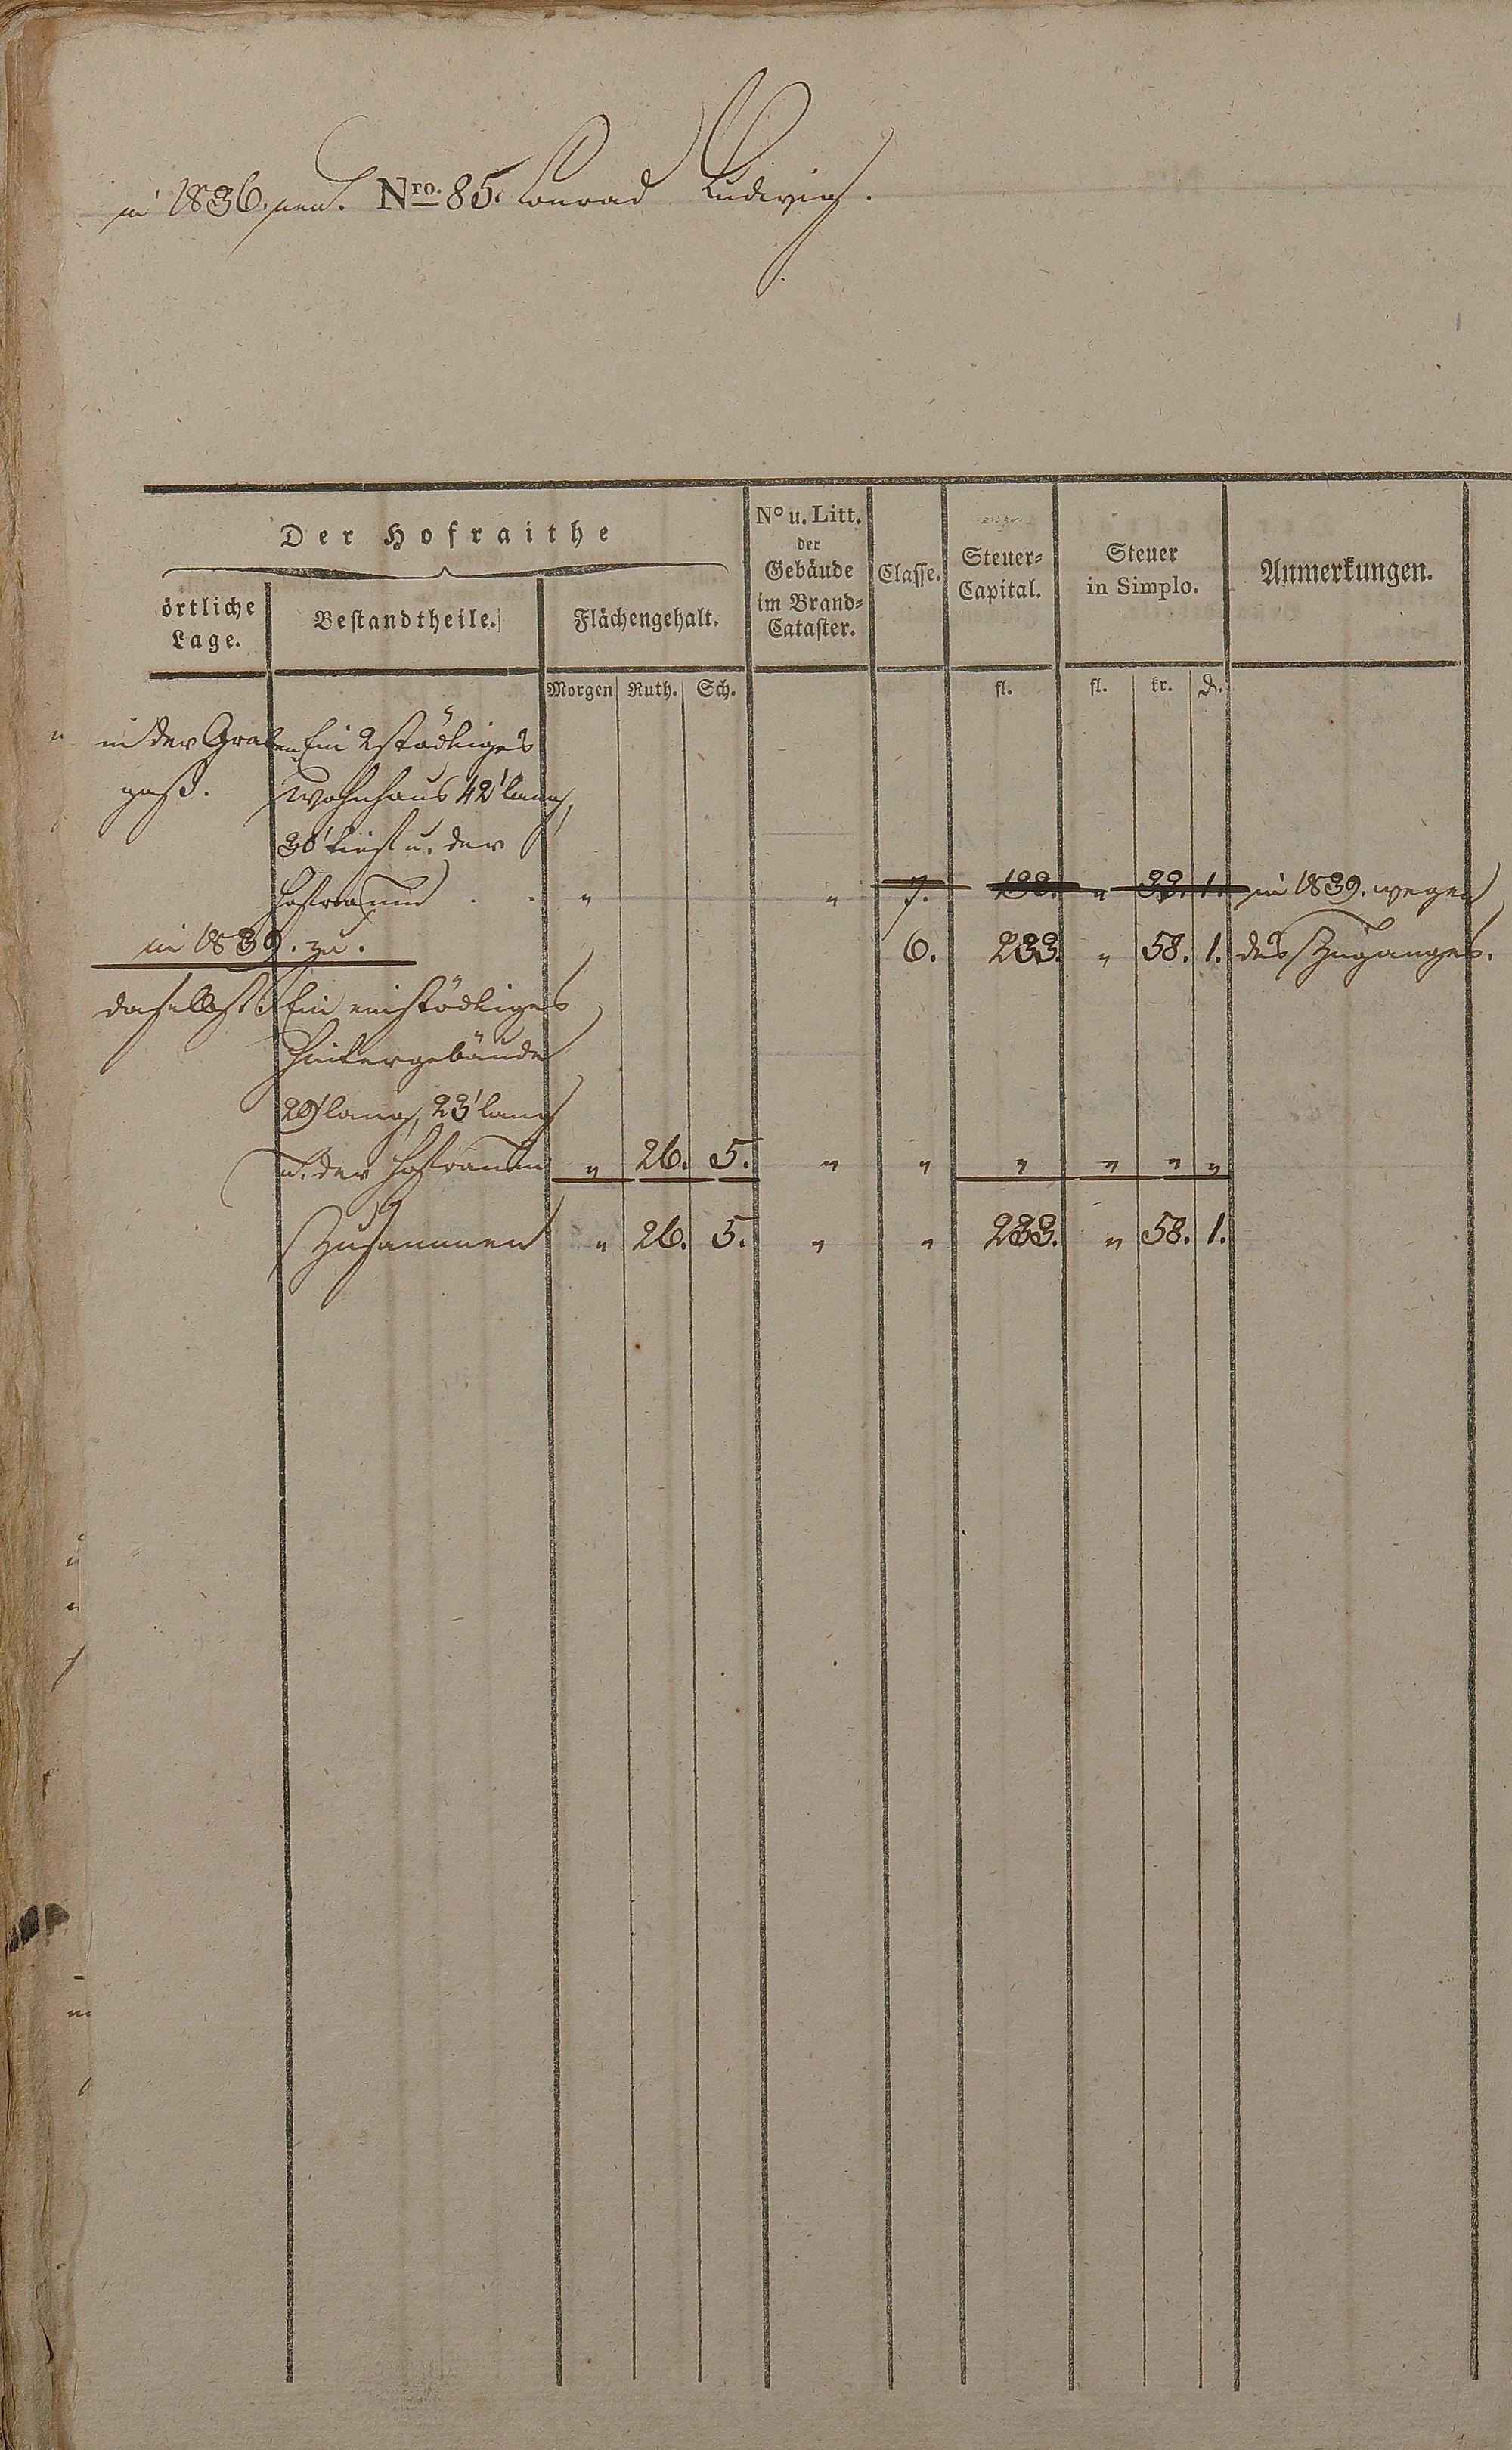 in 1836. neu. Nro. 85. Conrad Ludwig.
Der Hofraithe
örtliche Lage.
Bestandtheile.
Flächengehalt.
No u. Litt. der Gebäude im Brand-Cataster.
Classe.
Steuer-Capital.
Steuer in Simplo.
Anmerkungen.
Morgen Ruth. Sch. fl. fl. kr. d.
in der Graben Ein 2stöckiges
gaß. Wohnhaus 42' lang,
30' tief u. der
Hofraum . . " " 7. 133. " 33. 1. in 1839. wegen
in 1839. zu. 6. 233. " 58. 1. des Zuganges.
daselbst Ein einstöckiges
Hintergebäude
29' lang, 23' lang
u. der Hofraum " 26. 5. " " " " " "
Zusammen " 26. 5. " " 233. " 58. 1.